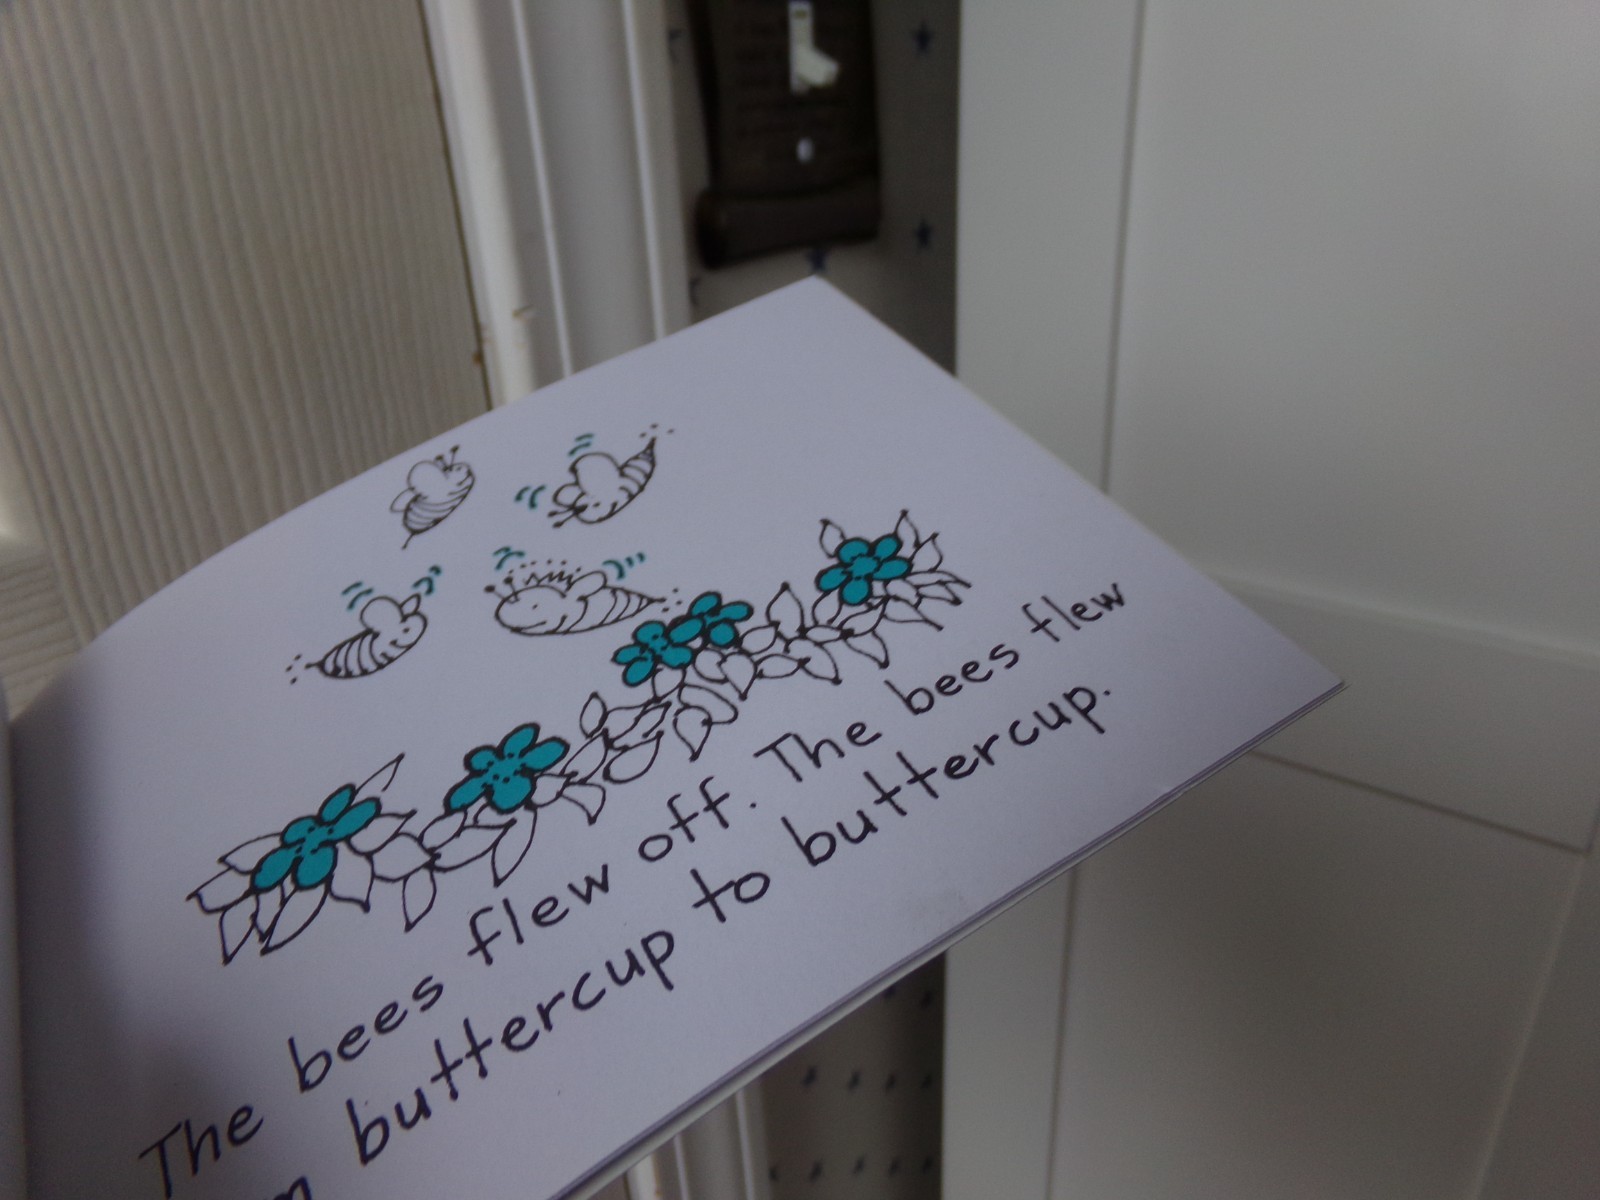 The bees flew off. The bees flew
buttercup to buttercup.